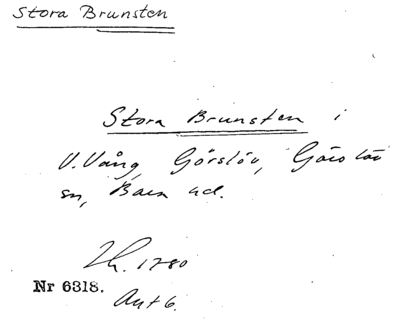 Stora Brunsten
Stora Brunsten i
V. Vång, Görslöv, Görslöv
sn, Bara hd.
1780
Nr 6318.
Avt 6.